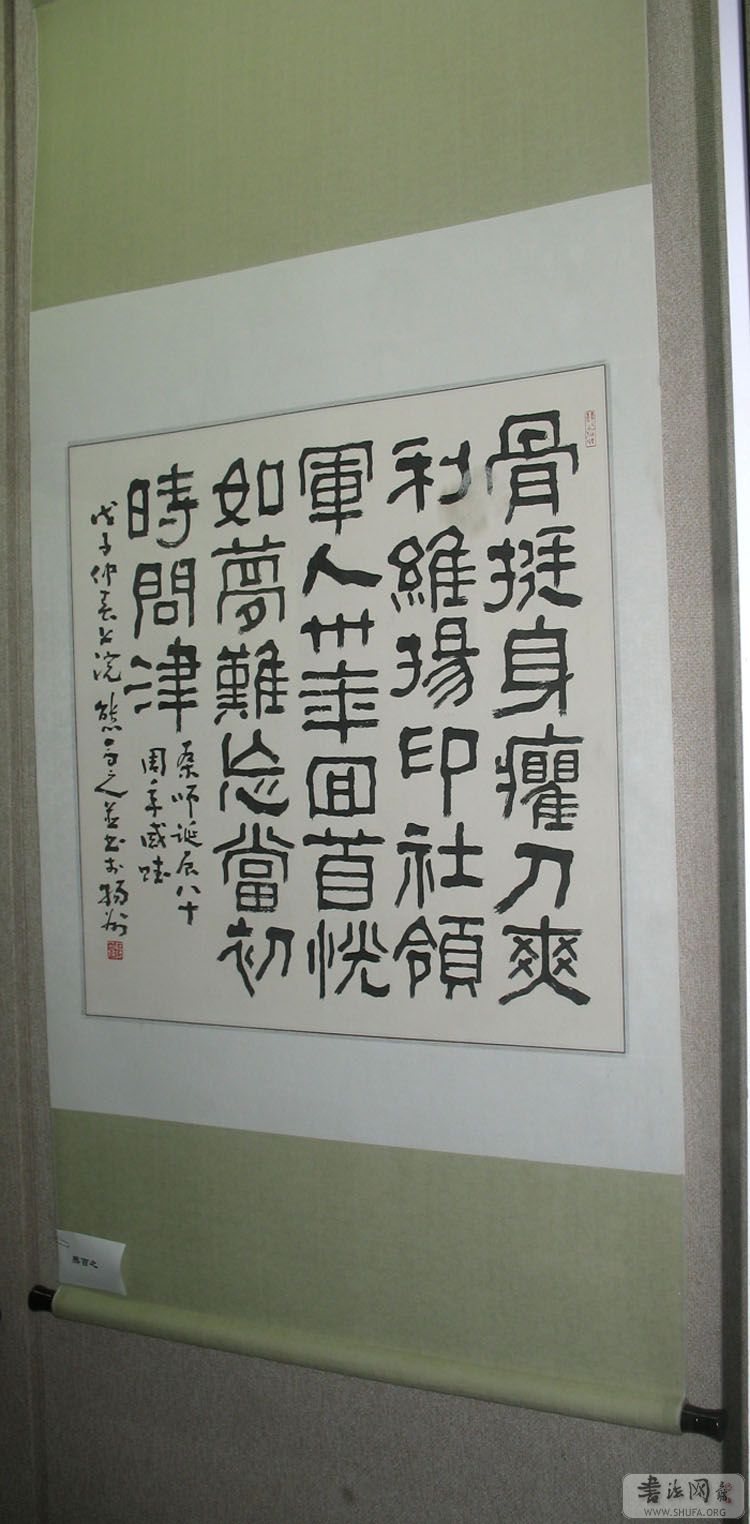 骨挺身癯刀爽
利維揚印社領
軍人卅年回首恍
如夢難忘當初
時問津
桑師誕辰八十
周年感賦
戊子仲春 熊百之並書於揚州
熊百之
书法网
WWW.SHUFA.ORG